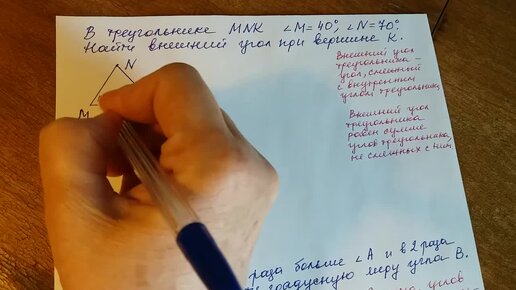 В треугольнике MNK ∠M=40°, ∠N=70°.
Найти внешний угол при вершине K.
Внешний угол
треугольника –
угол, смежный
с внутренним
углом треугольника
Внешний угол
треугольника
равен сумме
углов треугольника,
не смежных с ним
N
M
раза больше ∠A и в 2 раза
градусную меру угла B.
углов